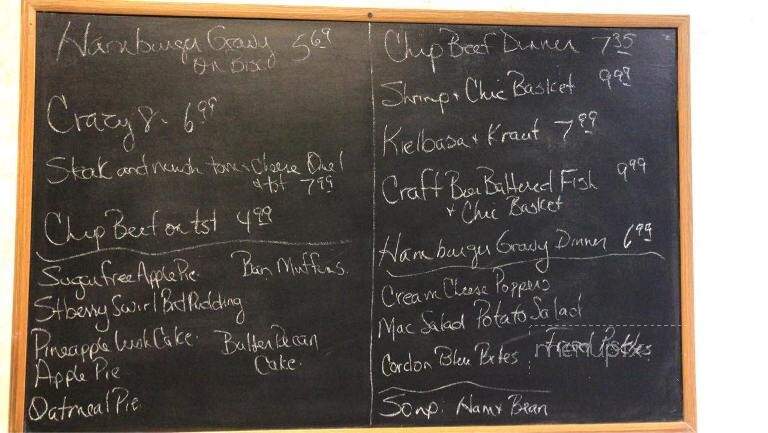 Hamburger Gravy 5.69
on Bisc
Crazy 8. 6.99
Steak and mush tom & Cheese Oml
& tst 7.99
Chip Beef on tst 4.99
Sugar free Apple Pie. Bran Muffins.
Stberry Swirl Brd Pudding
Pineapple Cake. Butter Pecan
Cake.
Apple Pie
Oatmeal Pie.
Chip Beef Dinner 7.35
Shrimp + Chic Basket 9.99
Kielbasa + Kraut 7.99
Craft Beer Battered Fish 9.99
+ Chic Basket
Hamburger Gravy Dinner 6.99
Cream Cheese Poppers
Mac Salad Potato Salad
Cordon Bleu Bites Fried Pickles
menupix
Soup. Ham & Bean